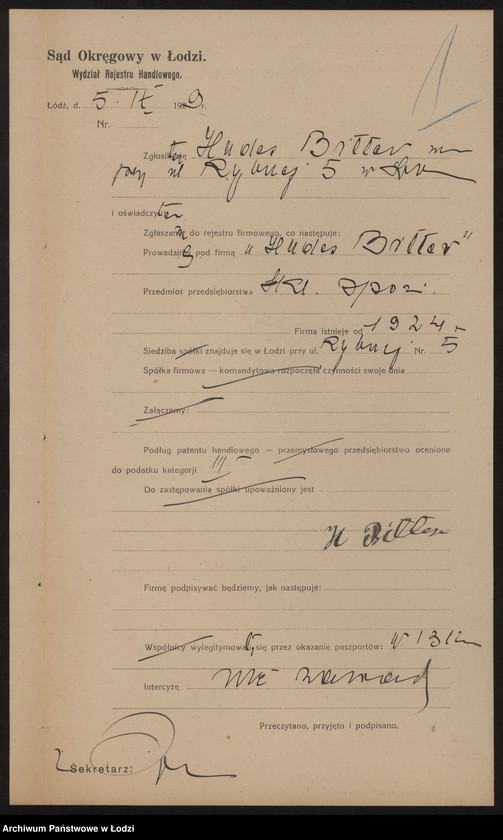 Sąd Okręgowy w Łodzi.
Wydział Rejestru Handlowego.
Łódź, d. 5. IX 1929 r.
Nr.
Zgłosił się Hudes Bitter
przy ul Rybnej 5 w
i oświadczył
Zgłaszam do rejestru firmowego, co następuje:
Prowadzę pod firmą „Hudes Bitter"
Przedmiot przedsiębiorstwa Skl. spoż.
Firma istnieje od 1924 r
Siedziba spółki znajduje się w Łodzi przy ul. Rybnej Nr. 5
Spółka firmowa — komandytowa rozpoczęła czynności swoje dnia
Załączamy:
Podług patentu handlowego — przemysłowego przedsiębiorstwo ocenione
do podatku kategorji III
Do zastępowania spółki upoważniony jest
H Bitter
Firmę podpisywać będziemy, jak następuje:
Wspólnicy wylegitymowali się przez okazanie paszportów:
Intercyzę nie zawarł
Przeczytano, przyjęto i podpisano.
Sekretarz:
Archiwum Państwowe w Łodzi